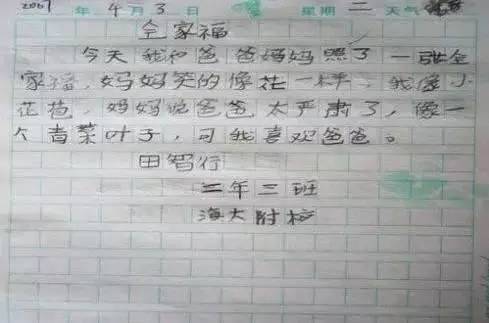 2007年 4月3日 星期二 天气
全家福
今天我和爸爸妈妈照了一张全
家福，妈妈笑的像花一样，我像小
花苞，妈妈说爸爸太严肃了，像一
个青菜叶子，可我喜欢爸爸。
田智行
二年三班
海大附校